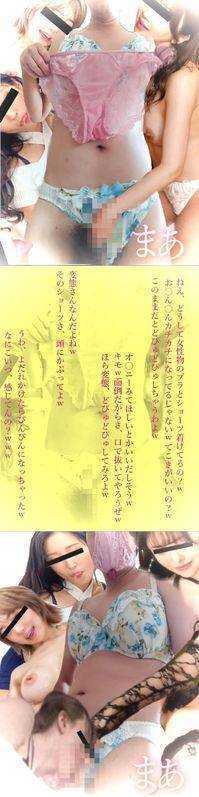 まあ
ねえ、どうして女性物のブラとショーツ着けてるの？w
お〇ん〇んカチカチになってるじゃないwてこきがいいの？w
このままだとどぴゅどぴゅしちゃうわよw
オ〇ニーみてほしいとかいいだしそうw
キモw面倒だからさ、口で抜いてやろうぜw
ほら変態、どぴゅどぴゅしてみろよw
変態さんなんだよねw
そのショーツさ、頭にかぶってよw
うわ、よだれかけたらびんびんになっちゃったw
なにこいつ、感じてんの？www
まあ